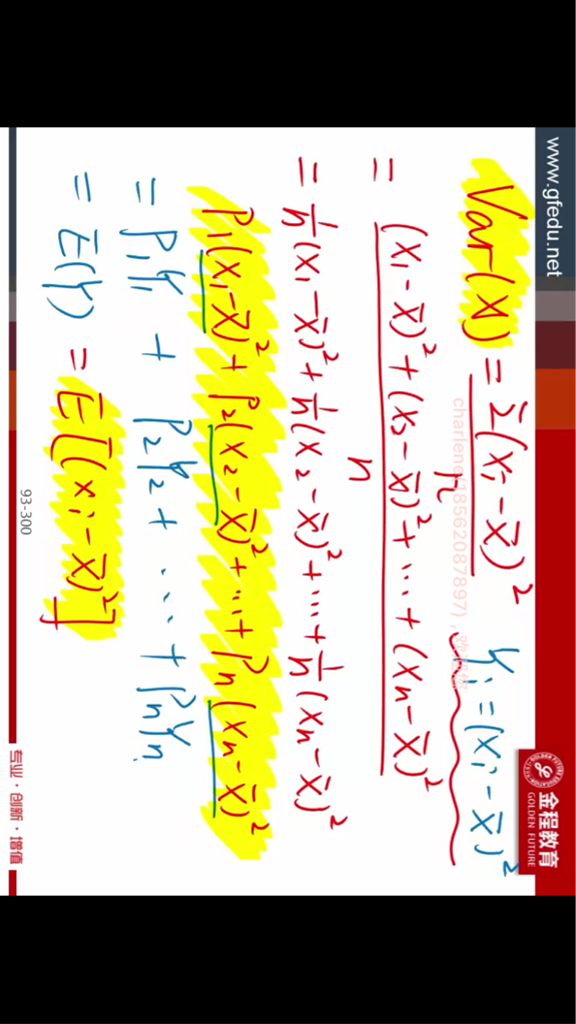 www.gfedu.net
金程教育
GOLDEN FUTURE
Var(X) = Σ(xᵢ - x̄)² / n
Yᵢ = (xᵢ - x̄)²
= (x₁ - x̄)² + (x₂ - x̄)² + ... + (xₙ - x̄)² / n
= 1/n (x₁ - x̄)² + 1/n (x₂ - x̄)² + ... + 1/n (xₙ - x̄)²
P₁(x₁ - x̄)² + P₂(x₂ - x̄)² + ... + Pₙ(xₙ - x̄)²
= P₁Y₁ + P₂Y₂ + ... + PₙYₙ
= E(Y) = E[(xᵢ - x̄)²]
93-300
专业·创新·增值